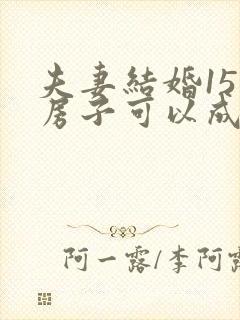 夫妻結婚15
房子可以成
阿一露/李阿露